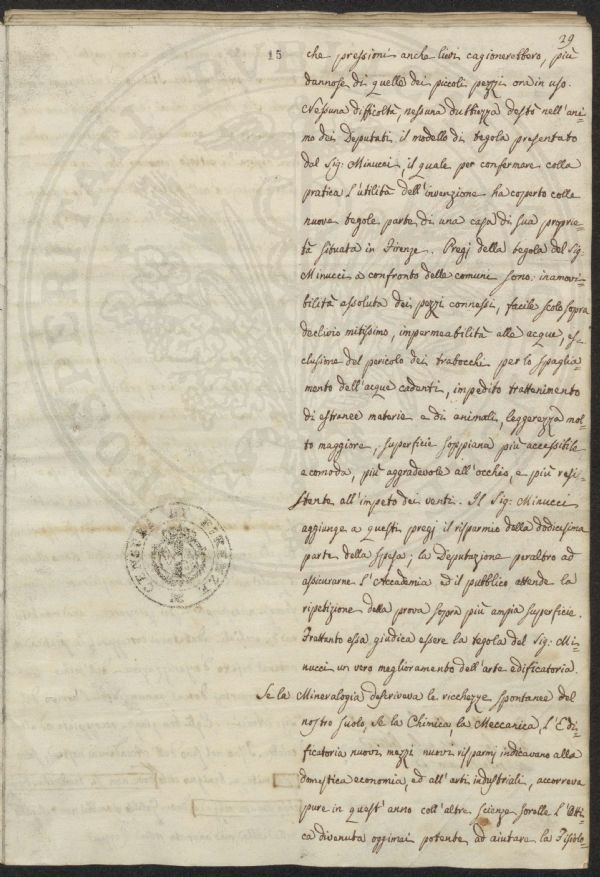 29
15
che pressioni anche lievi cagionerebbero, più
dannose di quelle dei piccoli pezzi ora in uso.
Nessuna difficoltà, nessuna dubbiezza desta nell'ani-
mo dei Deputati il modello di tegola presentato
dal Sig: Minucci, il quale per confermare colla
pratica l'utilità dell'invenzione ha coperto colle
nuove tegole parte di una casa di sua proprie-
tà situata in Firenze. Pregj della tegola del Sig.
Minucci a confronto delle comuni sono: inamovi-
bilità assoluta dei pezzi connessi, facile scolo sopra
declivio mitissimo, impermeabilità alle acque, es-
clusione del pericolo dei trabocchi per lo spaglia-
mento dell'acque cadenti, impedito trattenimento
di estranee materie e di animali, leggerezza mol-
to maggiore, superficie soppiana più accessibile
e comoda, più aggradevole all'occhio, e più resi-
stente all'impeto dei venti. Il Sig: Minucci
aggiunge a questi pregj il risparmio della dodicesima
parte della spesa; la Deputazione peraltro ad
assicurarne l'Accademia ed il pubblico attende la
ripetizione della prova sopra più ampia superficie.
Frattanto essa giudica essere la tegola del Sig: Mi-
nucci un vero meglioramento dell'arte edificatoria.
Se la Mineralogia descriveva le ricchezze spontanee del
nostro suolo, se la Chimica, la Meccanica, l'Edi-
ficatoria nuovi mezzi nuovi risparmj indicavano alla
domestica economia, ed all'arti industriali, accorreva
pure in quest'anno coll'altre scienze sorelle l'Otti-
ca divenuta oggimai potente ad aiutare la Fisiolo-
CENSURA DI FIRENZE